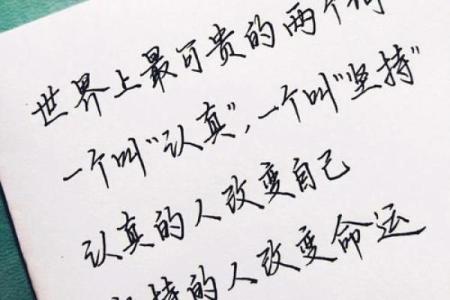 世界上最可贵的两个词
一个叫“认真”，一个叫“坚持”
认真的人改变自己
坚持的人改变命运